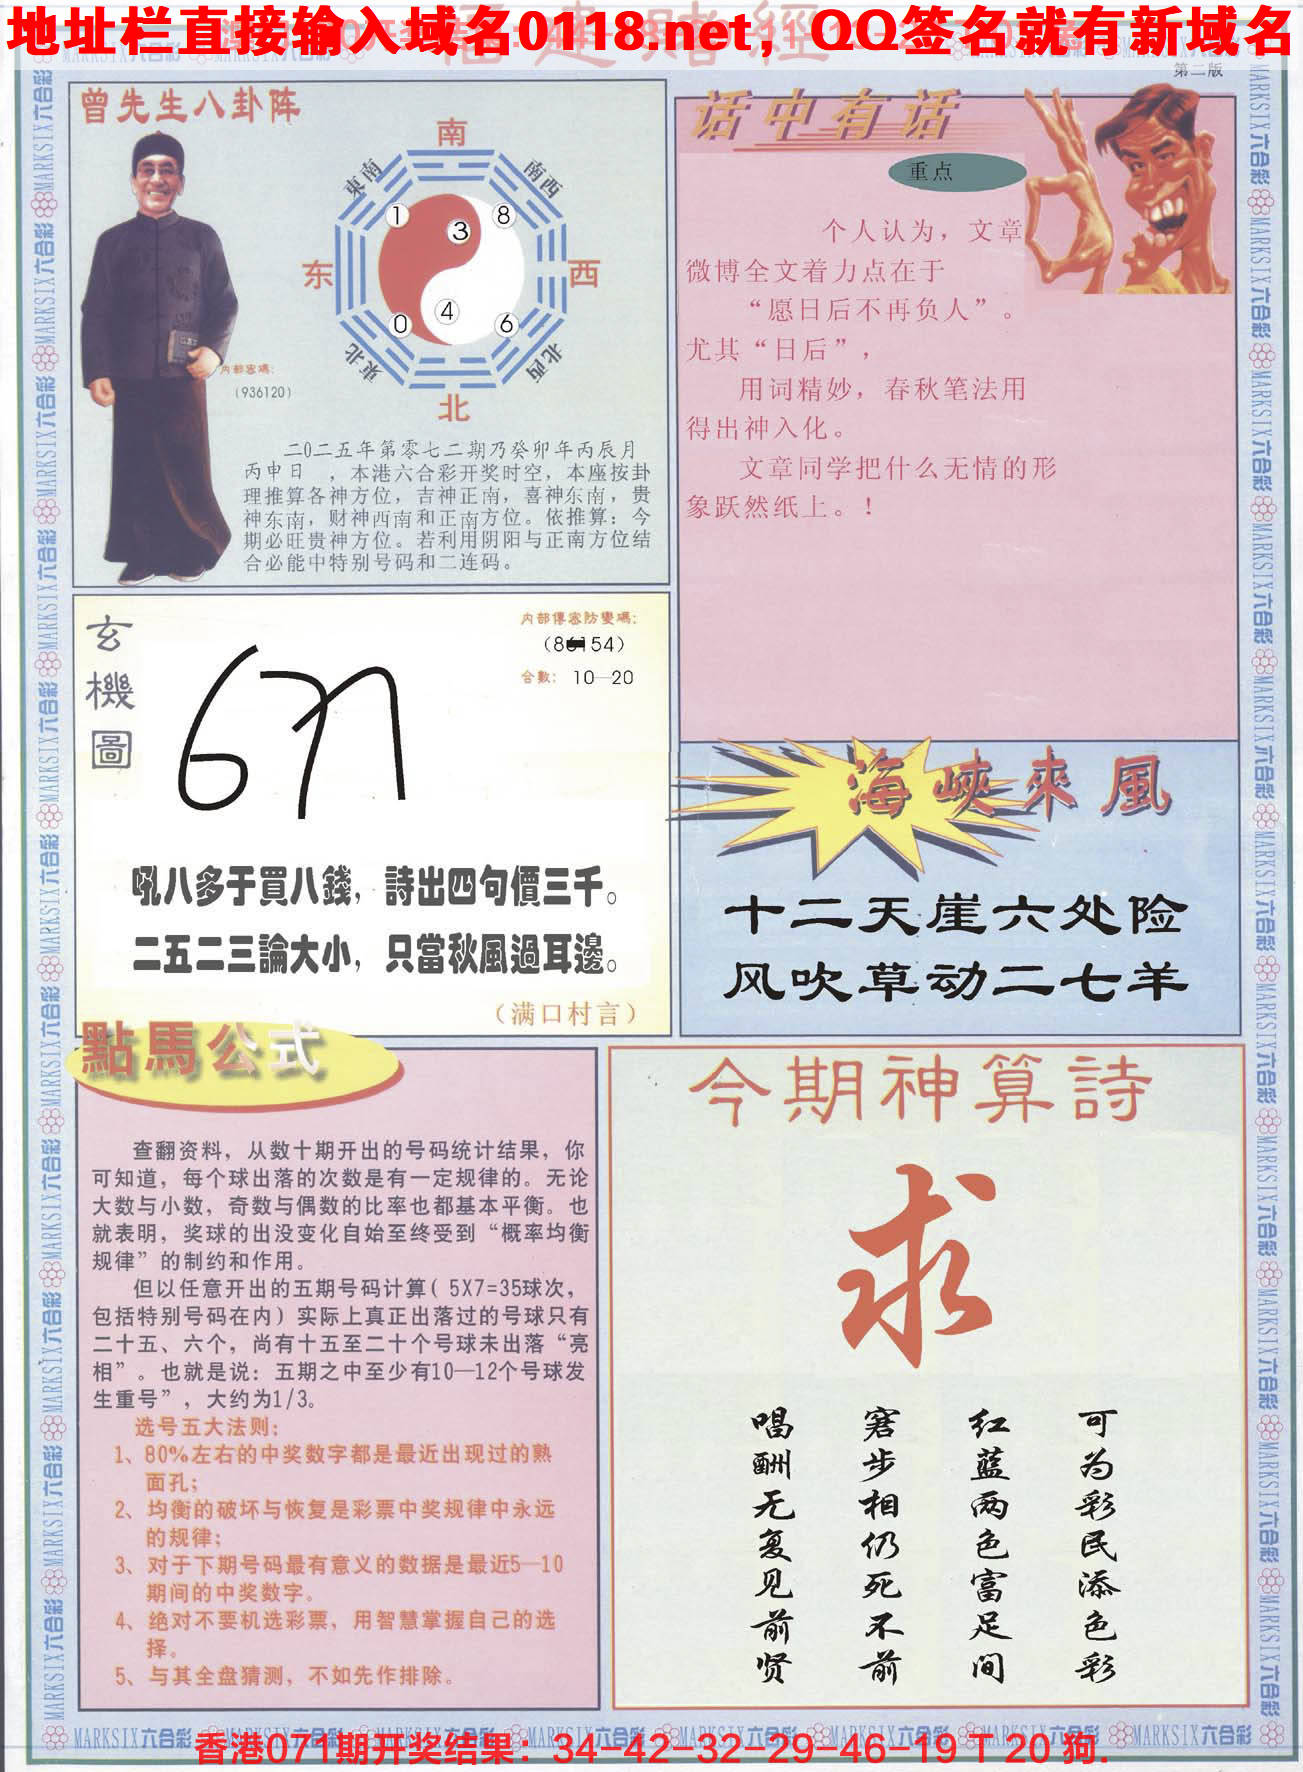 地址栏直接输入域名0118.net，QQ签名就有新域名
第二版
曾先生八卦阵
南
東南
南西
1
8
3
东
西
4
0
6
東北
北西
北
内部密碼：
（936120）
二0二五年第零七二期乃癸卯年丙辰月
丙申日　，本港六合彩开奖时空，本座按卦
理推算各神方位，吉神正南，喜神东南，贵
神东南，财神西南和正南方位。依推算：今
期必旺贵神方位。若利用阴阳与正南方位结
合必能中特别号码和二连码。
话中有话
重点
个人认为，文章
微博全文着力点在于
“愿日后不再负人”。
尤其“日后”，
用词精妙，春秋笔法用
得出神入化。
文章同学把什么无情的形
象跃然纸上。！
玄機圖
内部傳密防變碼：
合數：10—20
吼八多于買八錢，詩出四句價三千。
二五二三論大小，只當秋風過耳邊。
（满口村言）
海峽來風
十二天崖六处险
风吹草动二七羊
點馬公式
查翻资料，从数十期开出的号码统计结果，你
可知道，每个球出落的次数是有一定规律的。无论
大数与小数，奇数与偶数的比率也都基本平衡。也
就表明，奖球的出没变化自始至终受到“概率均衡
规律”的制约和作用。
但以任意开出的五期号码计算（5X7=35球次，
包括特别号码在内）实际上真正出落过的号球只有
二十五、六个，尚有十五至二十个号球未出落“亮
相”。也就是说：五期之中至少有10—12个号球发
生重号”，大约为1/3。
选号五大法则：
1、80%左右的中奖数字都是最近出现过的熟
面孔；
2、均衡的破坏与恢复是彩票中奖规律中永远
的规律；
3、对于下期号码最有意义的数据是最近5—10
期间的中奖数字。
4、绝对不要机选彩票，用智慧掌握自己的选
择。
5、与其全盘猜测，不如先作排除。
今期神算詩
求
可为彩民添色彩
红蓝两色富足间
窘步相仍死不前
唱酬无复见前贤
MARKSIX六合彩
香港071期开奖结果：34-42-32-29-46-19 T 20 狗.